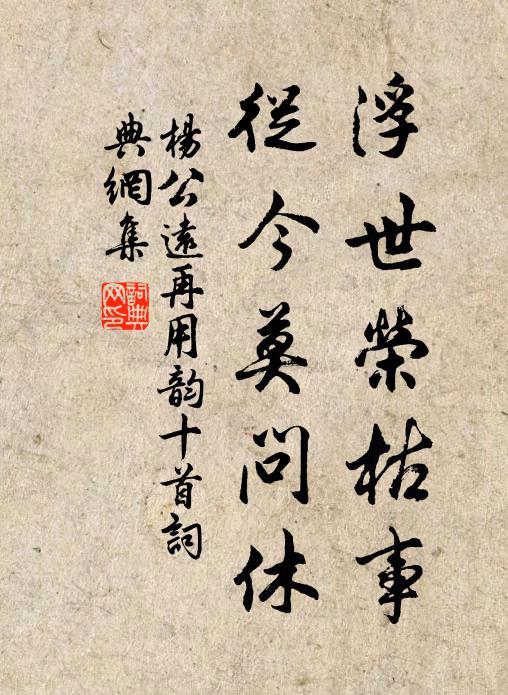 浮世榮枯事
從今莫問休
楊公遠再用韵十首詞
典網集
詞典网印